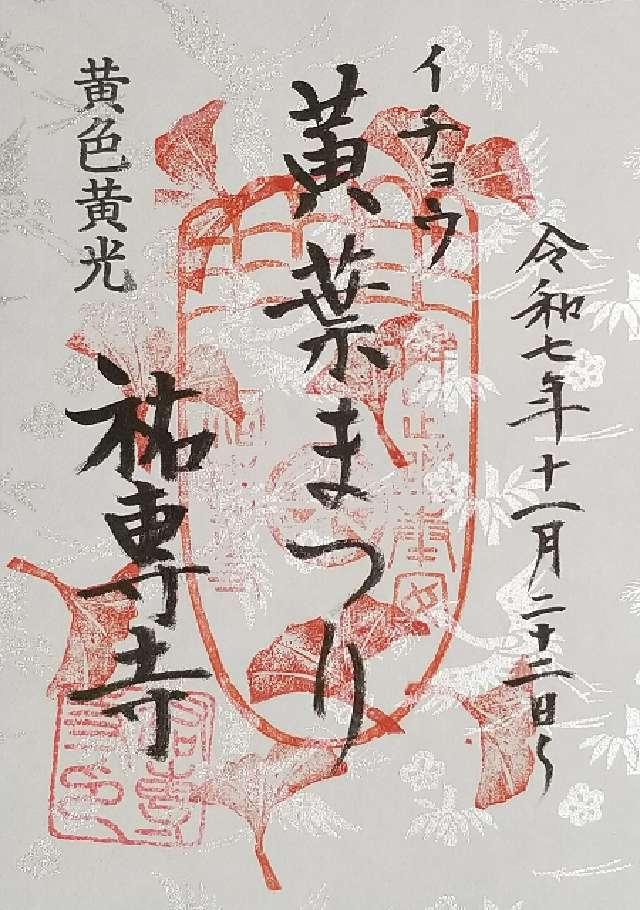 令和七年十一月二十二日〜
イチョウ
黄葉まつり
黄色黄光
祐専寺